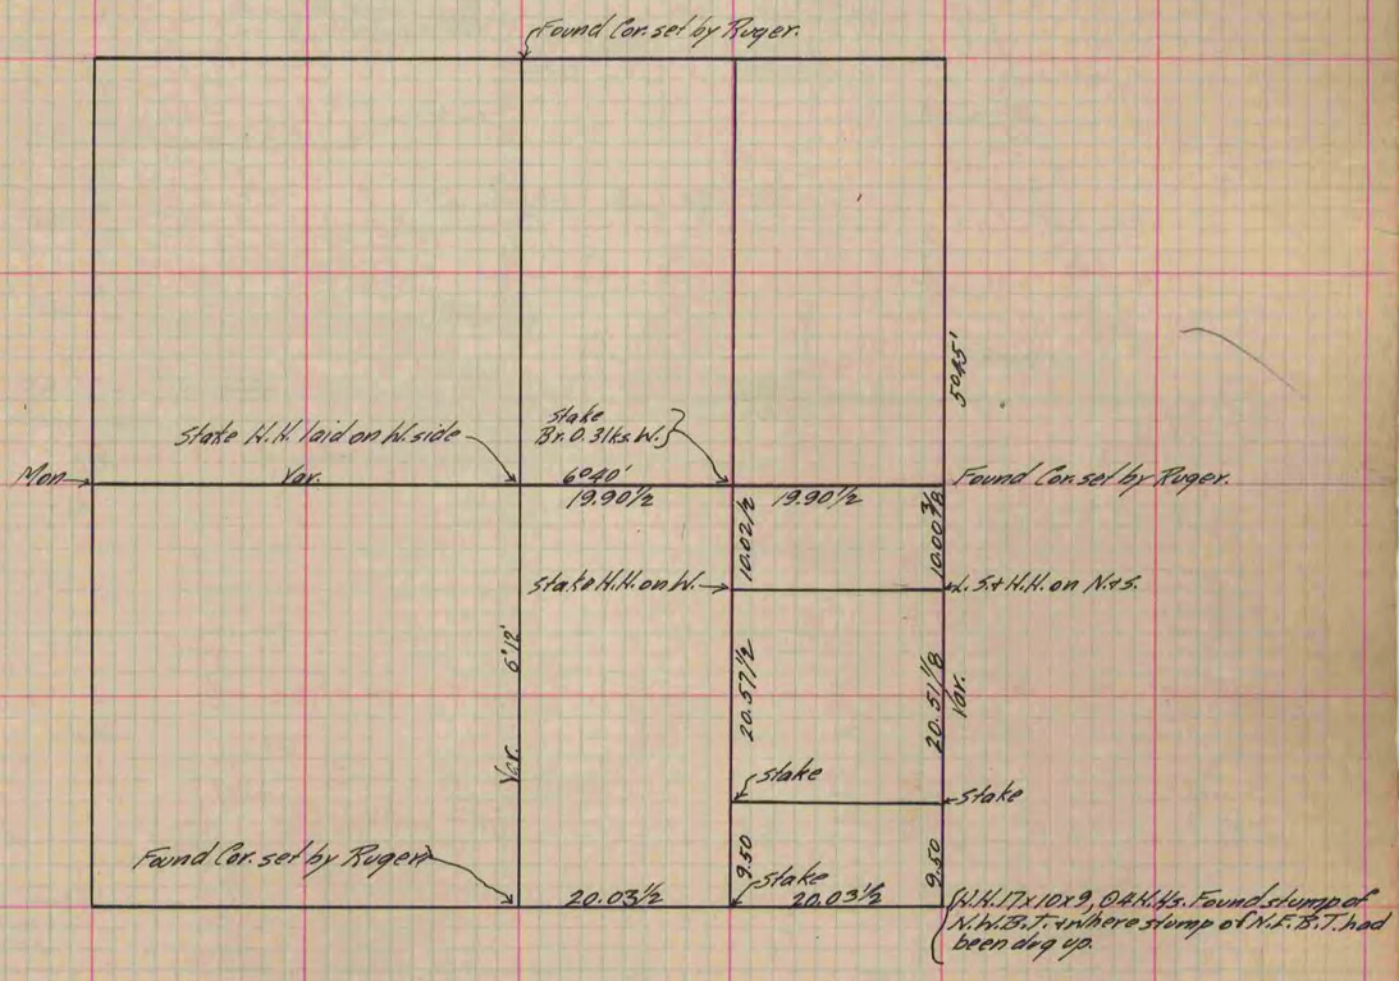 Found Cor. set by Ruger.
5°45'
Stake H.H. laid on W. side
stake
Br. 0.3lks. W.
Mon
Var.
6°40'
Found Cor. set by Ruger.
19.90½
19.90½
10.02½
10.00⅜
stake H.H. on W.
L.S. & H.H. on N. & S.
6°12'
20.57½
20.51⅛
Var.
Var.
stake
stake
Found Cor. set by Ruger
9.50
9.50
stake
20.03½
20.03½
H.H. 17x10x9, 4 H.Hs. Found stump of
N.W.B.T. & where stump of N.E.B.T. had
been dug up.